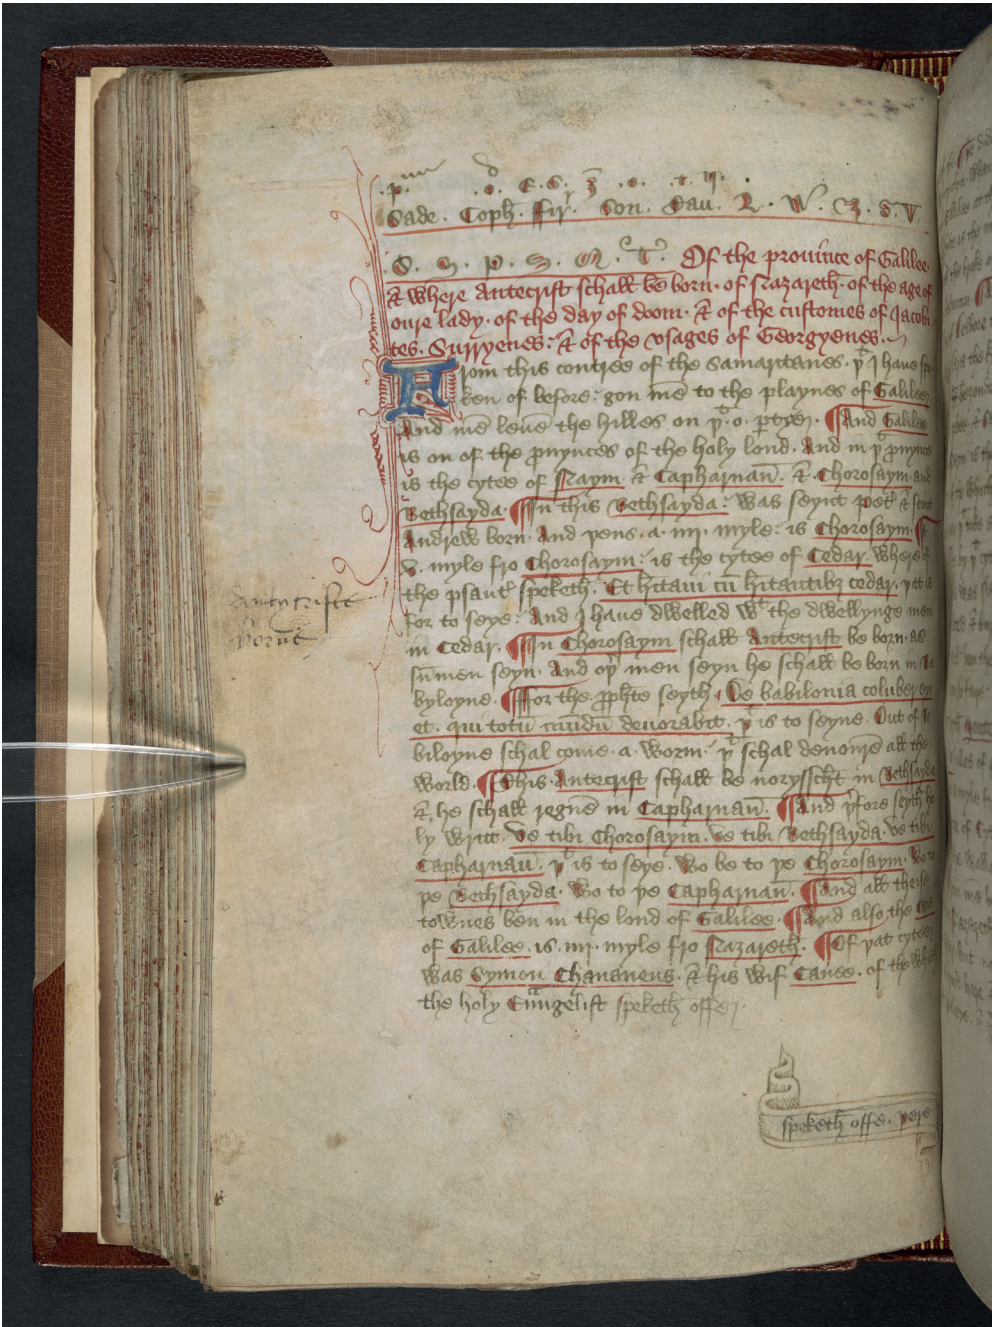 Sade. Coph. Fir. Son. Tau. R. W. Z. S. V
Of the prouince of Galilee.
& where Antecrist schall be born. of Nazareth. of the age of
oure lady. of the day of doom. & of the customes of Jacobi
tes. Surryenes. & of the vsages of Georgyenes.
From this contree of the Samaritanes. þt I haue spo
ken of before: gon men to the playnes of Galilee.
And men leuen the hilles on þt. o. partye. And Galilee
is on of the prouynces of the holy lond. And in þt prouynce
is the cytee of Naym & Capharnaū. & Chorosaym. and
Bethsayda. In this Bethsayda: was seynt Petir & seint
Andrew born. And þens. a. iiij. myle: is Chorosaym.
v. myle fro Chorosaym: is the cytee of Cedar. Where of
the psauter speketh. Et hitaui cū hitantibz cedar. þat is
for to seye: And I haue dwelled wt the dwellynge men
in Cedar. In Chorosaym schall Antecrist be born. as
sum men seyn. And oþer men seyn he schall be born in Ba
byloyne. ffor the prophete seyth. De babilonia coluber exi
et. qui totū mūdū deuorabit. þt is to seyne. Out of Ba
biloyne schal come. a. worm. þt schal deuouren all the
world. This Antecrist schall be norysscht in Bethsayda
& he schall regne in Capharnaū. And þerfore seyth ho
ly writt. Ve tibi Chorosaym. ve tibi Bethsayda. ve tibi
Capharnaū. þt is to seye. Wo be to þe Chorosaym. Wo to
þe Bethsayda. Wo to þe Capharnaū. And all theise
townes ben in the lond of Galilee. And also the Cane
of Galilee. is. iiij. myle fro Nazareth. Of þat cytee
was Symon Chananeus. & his wif Canee. of the whiche
the holy Euangelist speketh offe.
Antycriste
borne
speketh offe. þere